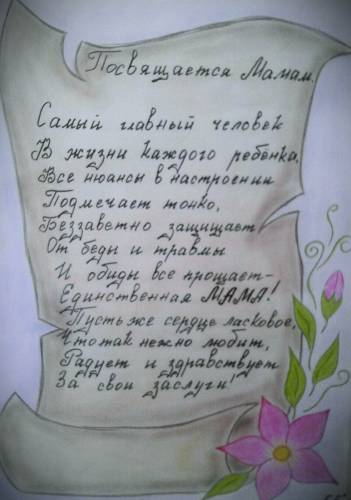 Посвящается Мамам.
Самый главный человек
В жизни каждого ребёнка,
Все нюансы в настроении
Подмечает тонко,
Беззаветно защищает
От беды и травмы
И обиды все прощает-
Единственная МАМА!
Пусть же сердце ласковое,
Что так нежно любит,
Радует и здравствует
За свои заслуги!